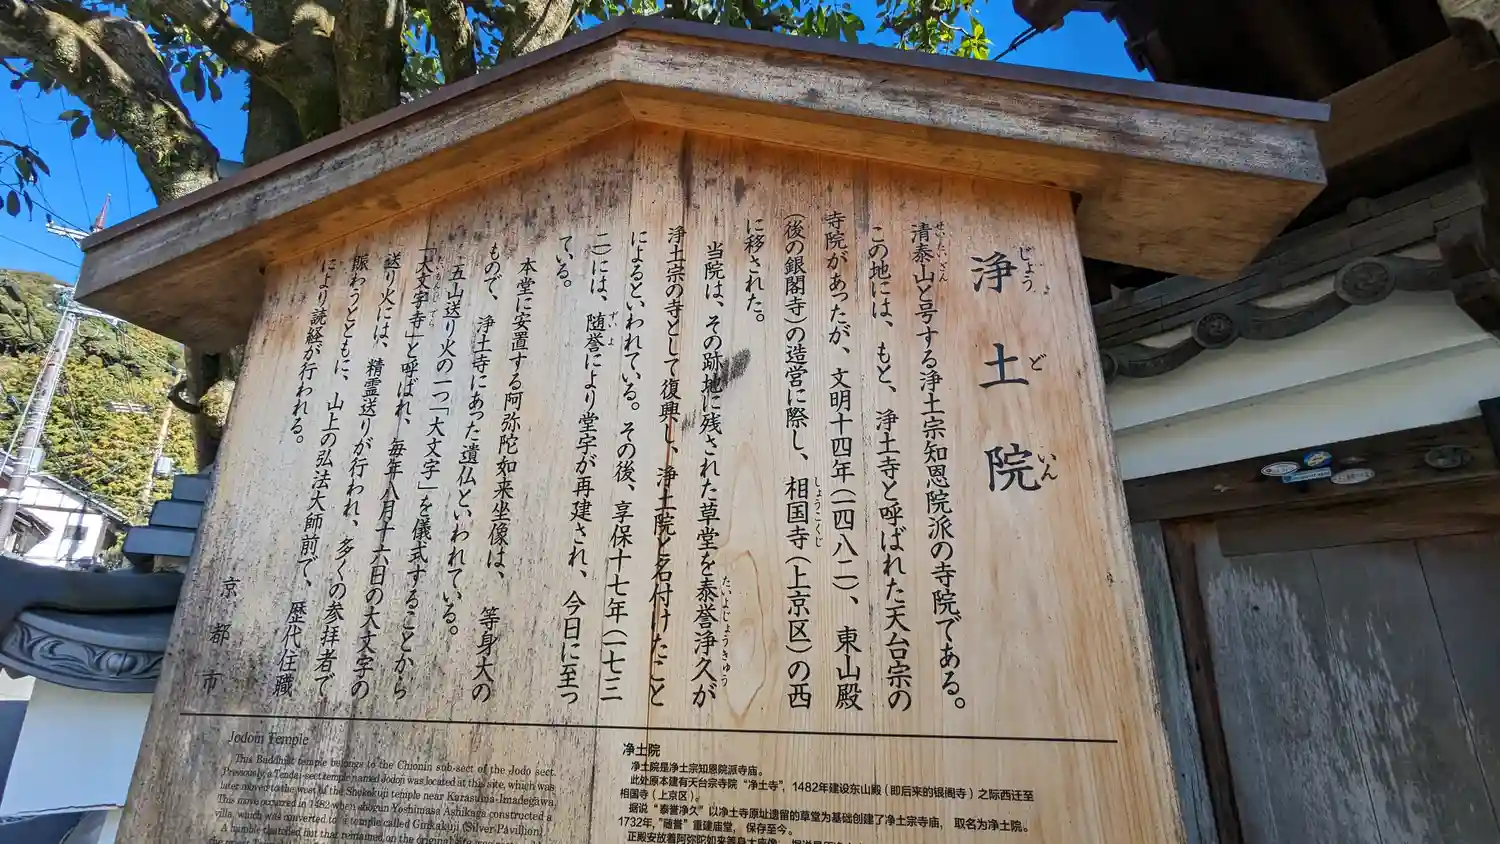 浄土院
じょう ど いん
清泰山と号する浄土宗知恩院派の寺院である。
せいたいざん
この地には、もと、浄土寺と呼ばれた天台宗の
寺院があったが、文明十四年(一四八二)、東山殿
(後の銀閣寺)の造営に際し、相国寺(上京区)の西
しょうこくじ
に移された。
当院は、その跡地に残された草堂を泰誉浄久が
たいよじょうきゅう
浄土宗の寺として復興し、浄土院と名付けたこと
によるといわれている。その後、享保十七年(一七三
二)には、随誉により堂宇が再建され、今日に至っ
ずいよ
ている。
本堂に安置する阿弥陀如来坐像は、等身大の
もので、浄土寺にあった遺仏といわれている。
五山送り火の一つ「大文字」を儀式することから
「大文字寺」と呼ばれ、毎年八月十六日の大文字の
だいもんじでら
送り火には、精霊送りが行われ、多くの参拝者で
賑わうとともに、山上の弘法大師前で、歴代住職
により読経が行われる。
京都市
Jodoin Temple
This Buddhist temple belongs to the Chionin sub-sect of the Jodo sect.
Previously, a Tendai-sect temple named Jodoji was located at this site, which was
later moved to the west of the Shokokuji temple near Karasuma-Imadegawa.
This move occurred in 1482 when shogun Yoshimasa Ashikaga constructed a
villa, which was converted to a temple called Ginkakuji (Silver Pavilion).
A humble thatched hut that remained on the original site was
净土院
净土院是净土宗知恩院派寺庙。
此处原本建有天台宗寺院“净土寺”，1482年建设东山殿（即后来的银阁寺）之际西迁至
相国寺（上京区）。
据说“泰誉净久”以净土寺原址遗留的草堂为基础创建了净土宗寺庙，取名为净土院。
1732年，“随誉”重建庙堂，保存至今。
正殿安放着阿弥陀如来等身大坐像，